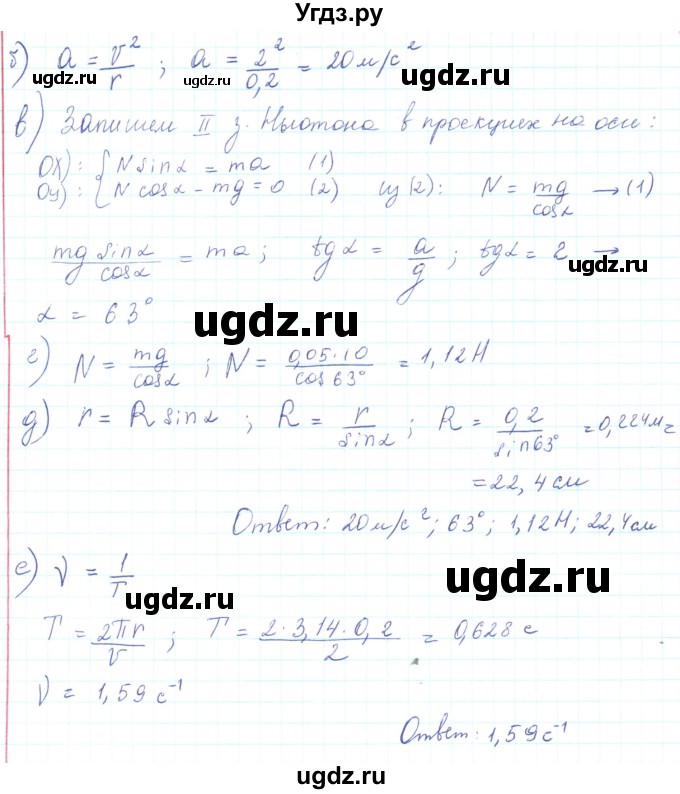 Угдз.ру
б) a = v²/r ; a = 2²/0,2 = 20 м/с²
ugdz.ru ugdz.ru ugdz.ru
в) Запишем II з. Ньютона в проекциях на оси:
OX): { N sinα = ma (1)
Oy): { N cosα - mg = 0 (2) из (2): N = mg/cosα → (1)
mg sinα/cosα = ma; tgα = a/g ; tgα = 2 →
ugdz.ru
α = 63°
ugdz.ru
г) N = mg/cosα ; N = 0,05·10/cos 63° = 1,12 Н
ugdz.ru ugdz.ru
д) r = R sinα ; R = r/sinα ; R = 0,2/sin 63° = 0,224 м =
ugdz.ru
= 22,4 см
Ответ: 20 м/с²; 63°; 1,12 Н; 22,4 см
ugdz.ru
е) ν = 1/T
ugdz.ru ugdz.ru
T = 2πr/v ; T = 2·3,14·0,2/2 = 0,628 с
ν = 1,59 с⁻¹
Ответ: 1,59 с⁻¹
ugdz.ru